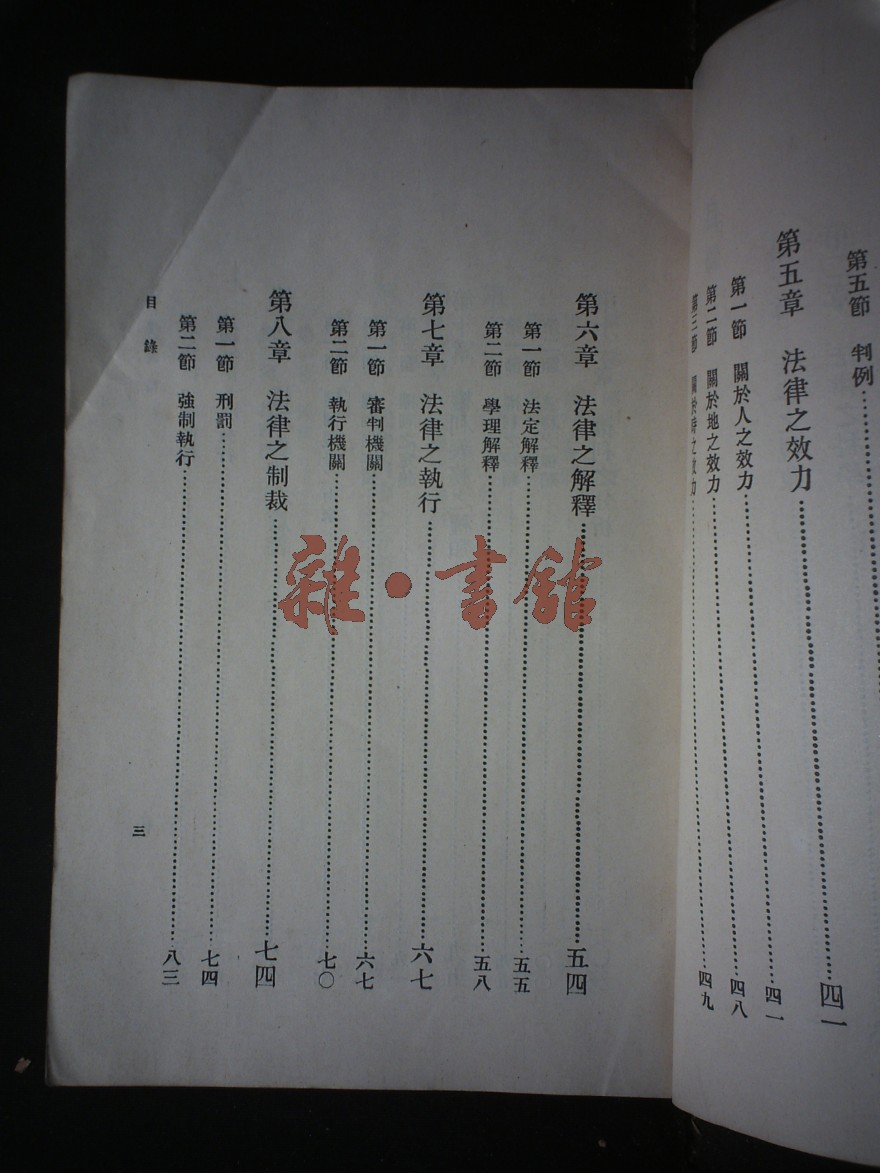 第五節　判例
第五章　法律之效力 四一
第一節　關於人之效力 四一
第二節　關於地之效力 四八
第三節　關於時之效力 四九
第六章　法律之解釋 五四
第一節　法定解釋 五五
第二節　學理解釋 五八
第七章　法律之執行 六七
第一節　審判機關 六七
第二節　執行機關 七〇
第八章　法律之制裁 七四
第一節　刑罰 七四
第二節　強制執行 八三
目錄
三
雜·書館